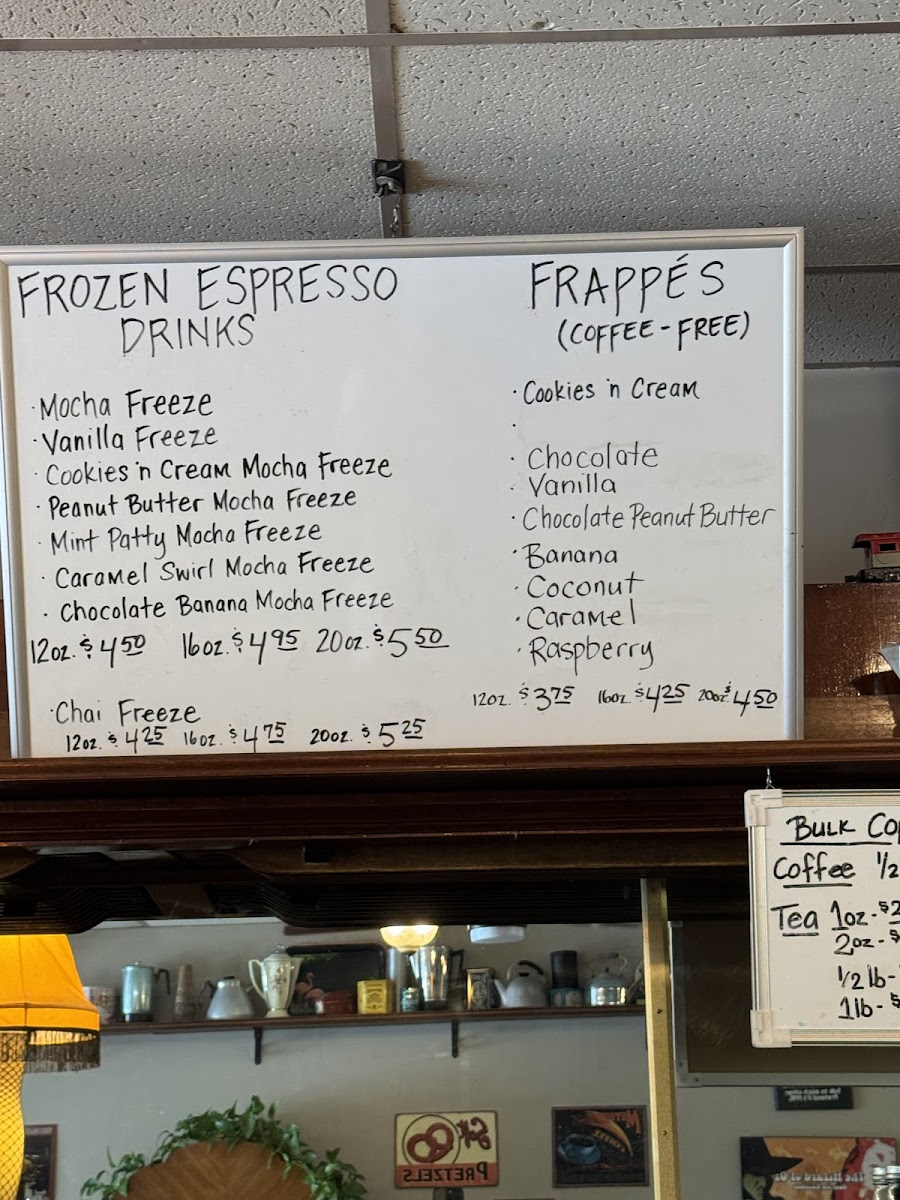 FROZEN ESPRESSO
DRINKS
· Mocha Freeze
· Vanilla Freeze
· Cookies 'n Cream Mocha Freeze
· Peanut Butter Mocha Freeze
· Mint Patty Mocha Freeze
· Caramel Swirl Mocha Freeze
· Chocolate Banana Mocha Freeze
12oz. $4.50 16oz. $4.95 20oz. $5.50
· Chai Freeze
12oz. $4.25 16oz. $4.75 20oz. $5.25
FRAPPÉS
(COFFEE-FREE)
· Cookies 'n Cream
·
· Chocolate
· Vanilla
· Chocolate Peanut Butter
· Banana
· Coconut
· Caramel
· Raspberry
12oz. $3.75 16oz. $4.25 20oz. $4.50
BULK
Coffee 1/2
Tea 1oz-$2
2oz-$
1/2 lb-
1lb-$
Soft
PRETZELS
The Wizard of Oz